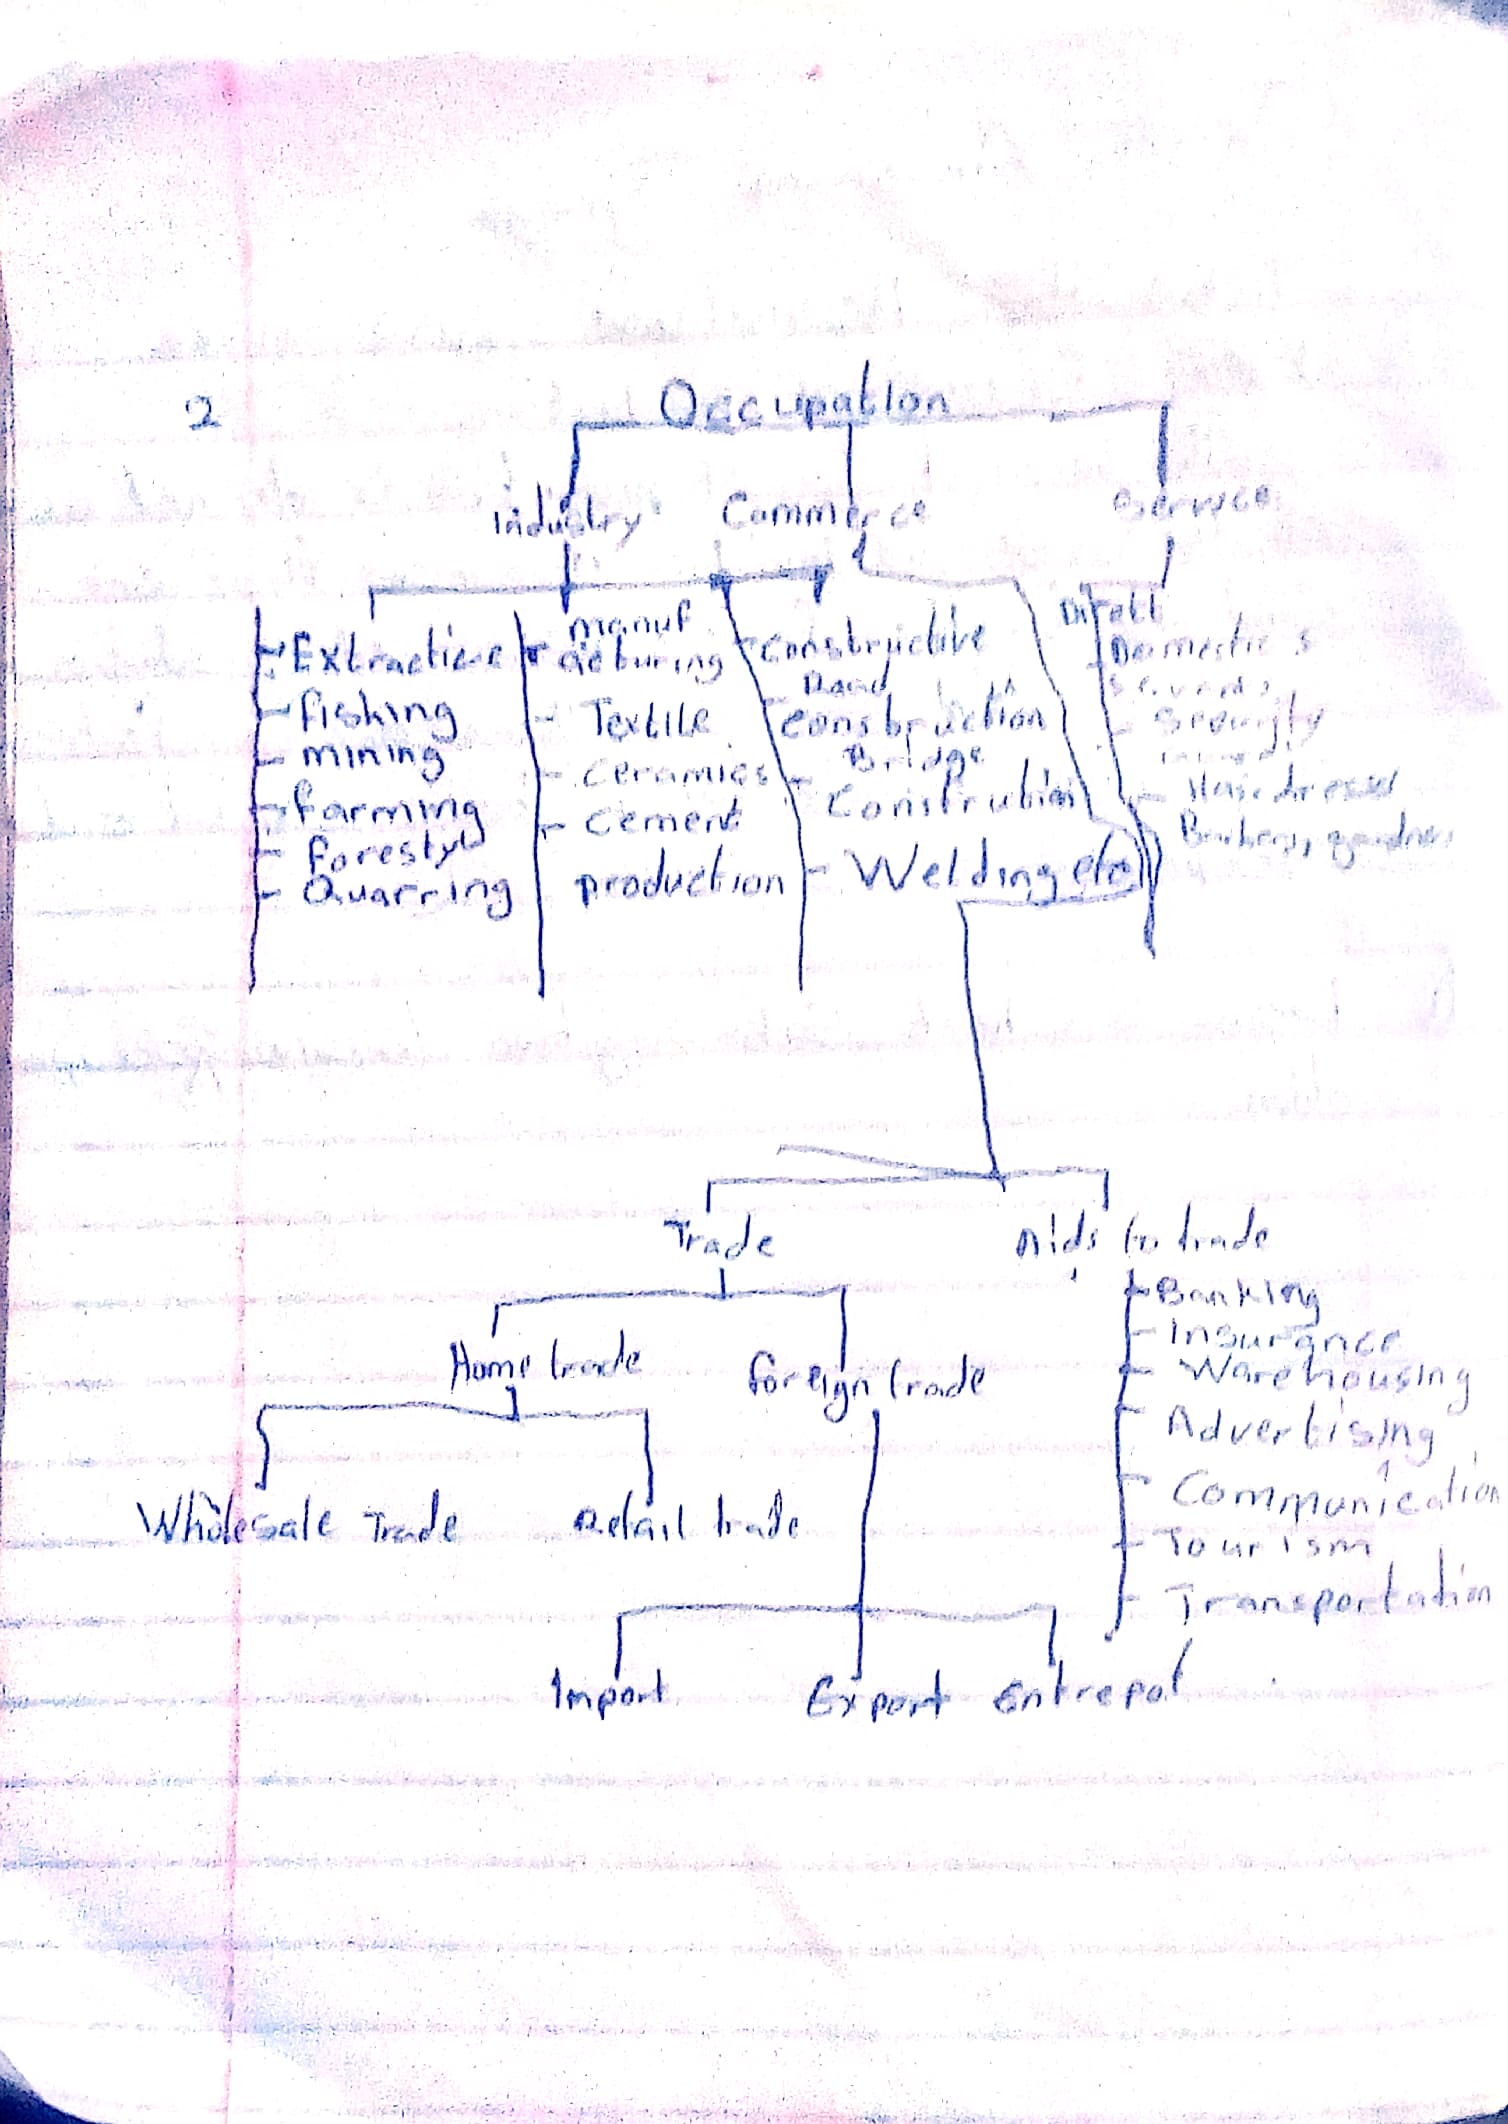 2
Occupation
industry Commerce Service
Direct
Extractive
fishing
mining
farming
foresty
Quarring
manuf
acturing
Textile
ceramics
cement
production
constructive
Road
construction
Bridge
Constrution
Welding etc
Domestic s
Security
Hairdresser
Trade Aids to trade
Banking
Insurance
Warehousing
Advertising
Communication
Tourism
Transportation
Home trade foreign trade
Wholesale Trade Retail trade
Import Export Entrepot